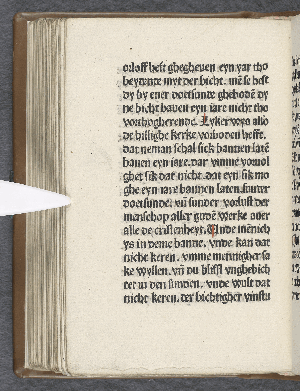 orloff hest ghegheuen eyn yar tho
beydente myt der bicht. me se hest
dy by ener dotsunde ghebode dy
ne bicht bauen eyn iare nicht tho
vorthogherende. Lyker wys also
de hillighe kerke vorboden hefft.
dat neman schal sick bannen laten
bauen eyn iare. dar vmme vormol
ghet sik dat nicht. dat eyn sik mo
ghe eyn iare bannen laten. sunder
dotsunde. vn sunder vorlust der
menschop aller gude werke auer
alle de cristenheyt. Unde menich
ys in deme banne. vnde kan dat
nicht keren. vmme mennigher sa
ke wyllen. vn du bliffst vnghebich
tet in den sunden. vnde wult dat
nicht keren. der bichtigher vinstu